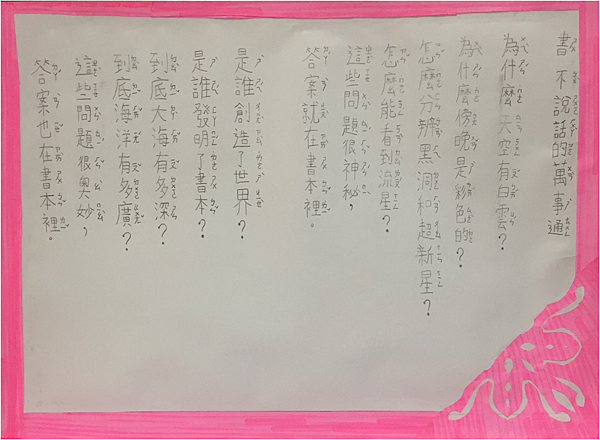 書 不說話的萬事通
為什麼天空有白雲？
為什麼傍晚是粉色的？
怎麼分辨黑洞和超新星？
怎麼能看到流星？
這些問題很神秘，
答案就在書本裡。
是誰創造了世界？
是誰發明了書本？
到底大海有多深？
到底海洋有多廣？
這些問題很奧妙，
答案也在書本裡。